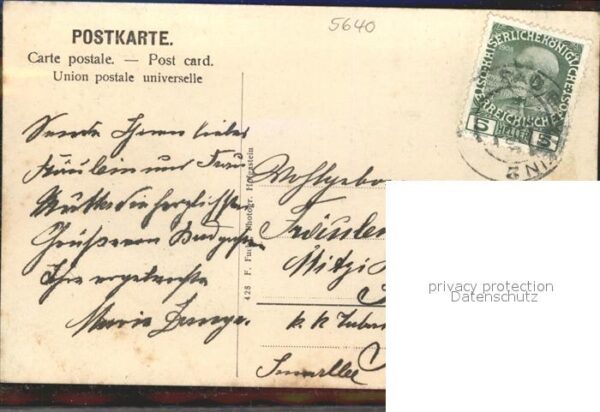 5640
POSTKARTE.
Carte postale. — Post card.
Union postale universelle
KAISERLICHE KÖNIGLICHE ÖSTERREICHISCHE
5 HELLER 5
Sende Ihnen liebes
Fräulein und Frau
Mutter die herzlichsten
Grüsse von
Ihre ergebenste
Maria
428 F. Photogr. Hofgastein
Wohlgebo
Fräulei
Mitzi
k. k.
privacy protection
Datenschutz